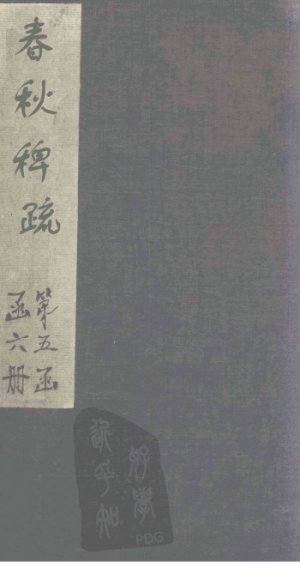 春秋稗疏
第五函
函六册
好學
PDG